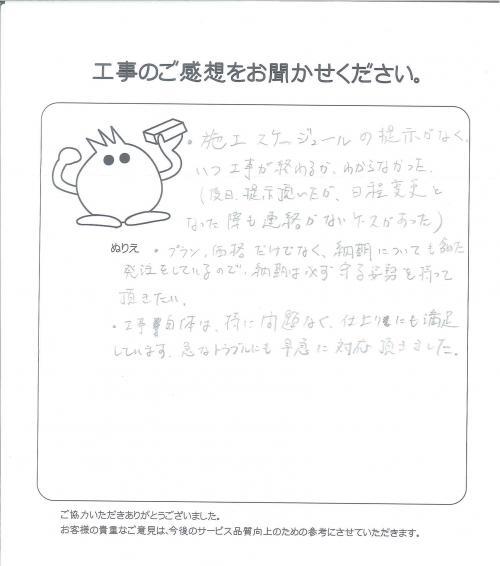 工事のご感想をお聞かせください。
・施工スケジュールの提示がなく、
いつ工事が終わるか、わからなかった。
(後日、提示頂いたが、日程変更と
なった際も連絡がないケースがあった)
ぬりえ
・プラン、価格だけでなく、納期についても含めた
発注をしているので、納期は必ず守る姿勢を持って
頂きたい。
・工事自体は、特に問題なく、仕上りにも満足
しています。急なトラブルにも早急に対応頂きました。
ご協力いただきありがとうございました。
お客様の貴重なご意見は、今後のサービス品質向上のための参考にさせていただきます。